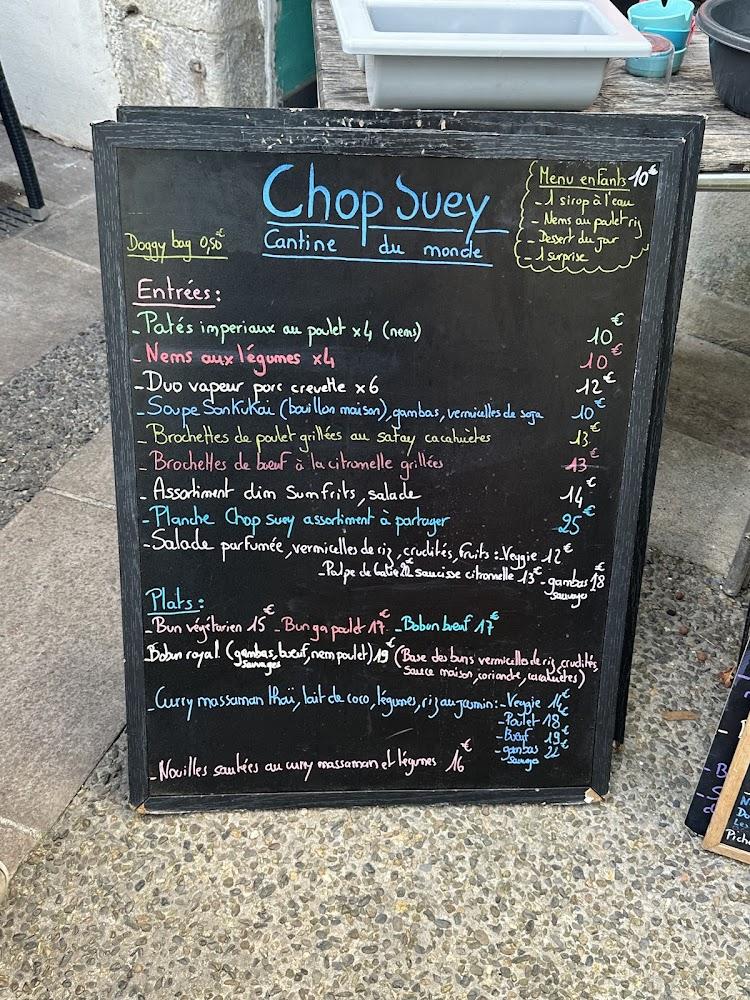 Chop Suey
Cantine du monde
Doggy bag 0,50€
Menu enfants 10€
- 1 sirop à l'eau
- Nems au poulet riz
- Dessert du jour
- 1 surprise
Entrées :
- Patés imperiaux au poulet x4 (nems) 10€
- Nems aux légumes x4 10€
- Duo vapeur porc crevette x6 12€
- Soupe Sonkukai (bouillon maison), gambas, vermicelles de soja 10€
- Brochettes de poulet grillées au satay cacahuètes 13€
- Brochettes de bœuf à la citronnelle grillées 13€
- Assortiment dim Sum frits, salade 14€
- Planche Chop Suey assortiment à partager 25€
- Salade parfumée, vermicelles de riz, crudités, fruits : - Veggie 12€
- Poulpe de saucisse citronnelle 13€ - gambas 18€
sauvages
Plats :
- Bun végétarien 15€ - Bun ga poulet 17€ - Bobun bœuf 17€
Bobun royal (gambas, bœuf, nem poulet) 19€ (Base des buns vermicelles de riz, crudités,
sauvages sauce maison, coriandre, cacahuètes)
- Curry massaman thaï, lait de coco, légumes, riz au jasmin : - Veggie 14€
- Poulet 18€
- Bœuf 19€
- gambas 22€
sauvages
- Nouilles sautées au curry massaman et légumes 16€